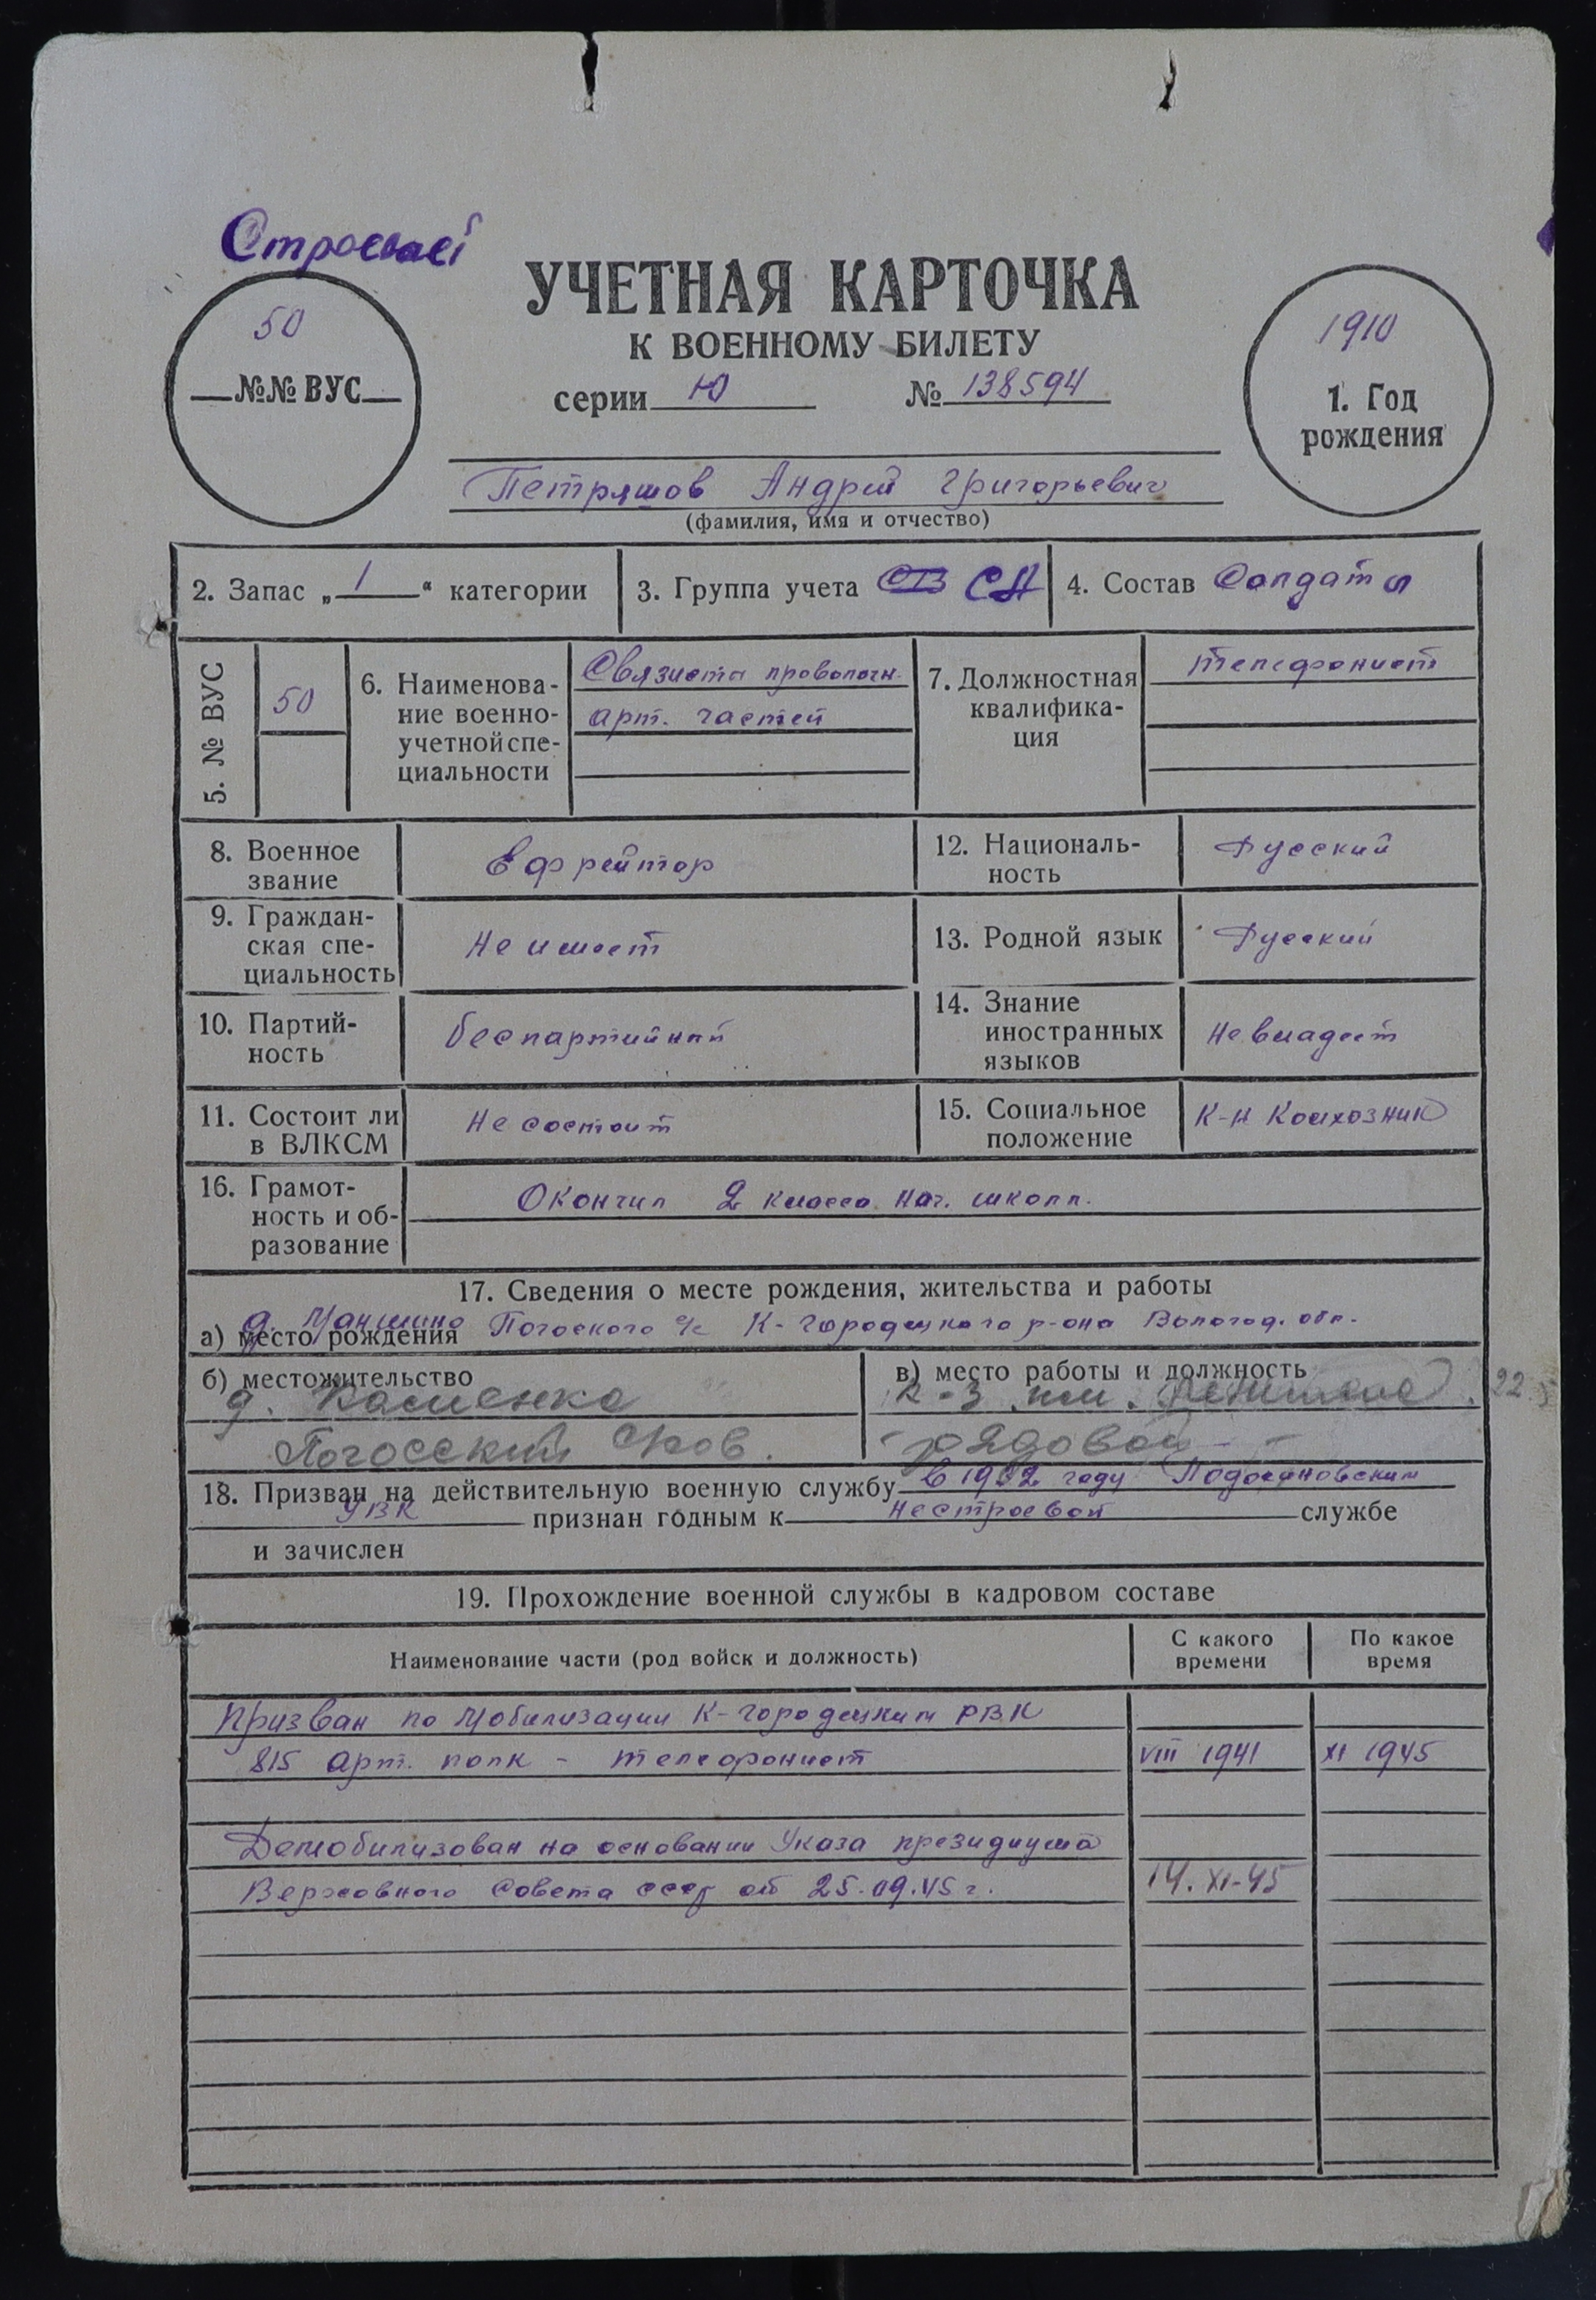 Строевой
50
№№ ВУС
УЧЕТНАЯ КАРТОЧКА
К ВОЕННОМУ БИЛЕТУ
серии Ю № 138594
1910
1. Год
рождения
Петряшов Андрей Григорьевич
(фамилия, имя и отчество)
2. Запас „1“ категории
3. Группа учета СВ СА
4. Состав Солдаты
5. № ВУС
50
6. Наименова-
ние военно-
учетной спе-
циальности
Связиста проволочн.
арт. частей
7. Должностная
квалифика-
ция
телефонист
8. Военное
звание
Ефрейтор
12. Националь-
ность
Русский
9. Граждан-
ская спе-
циальность
Не имеет
13. Родной язык
Русский
10. Партий-
ность
беспартийный
14. Знание
иностранных
языков
Не владеет
11. Состоит ли
в ВЛКСМ
Не состоит
15. Социальное
положение
К-н Колхозник
16. Грамот-
ность и об-
разование
Окончил 2 класса нач. школы.
17. Сведения о месте рождения, жительства и работы
а) место рождения д. Погоского с/с К-Городецкого р-она Вологод. обл.
б) местожительство
д. Каменка
Погосский
в) место работы и должность
к-з им.
рядовой
18. Призван на действительную военную службу в 1932 году Подосиновским
УВК признан годным к нестроевой службе
и зачислен
19. Прохождение военной службы в кадровом составе
Наименование части (род войск и должность)
С какого
времени
По какое
время
Призван по мобилизации К-Городецким РВК
815 арт. полк - телефонист VIII 1941 XI 1945
Демобилизован на основании Указа президиума
Верховного Совета СССР от 25.09.45 г. 14.XI-45